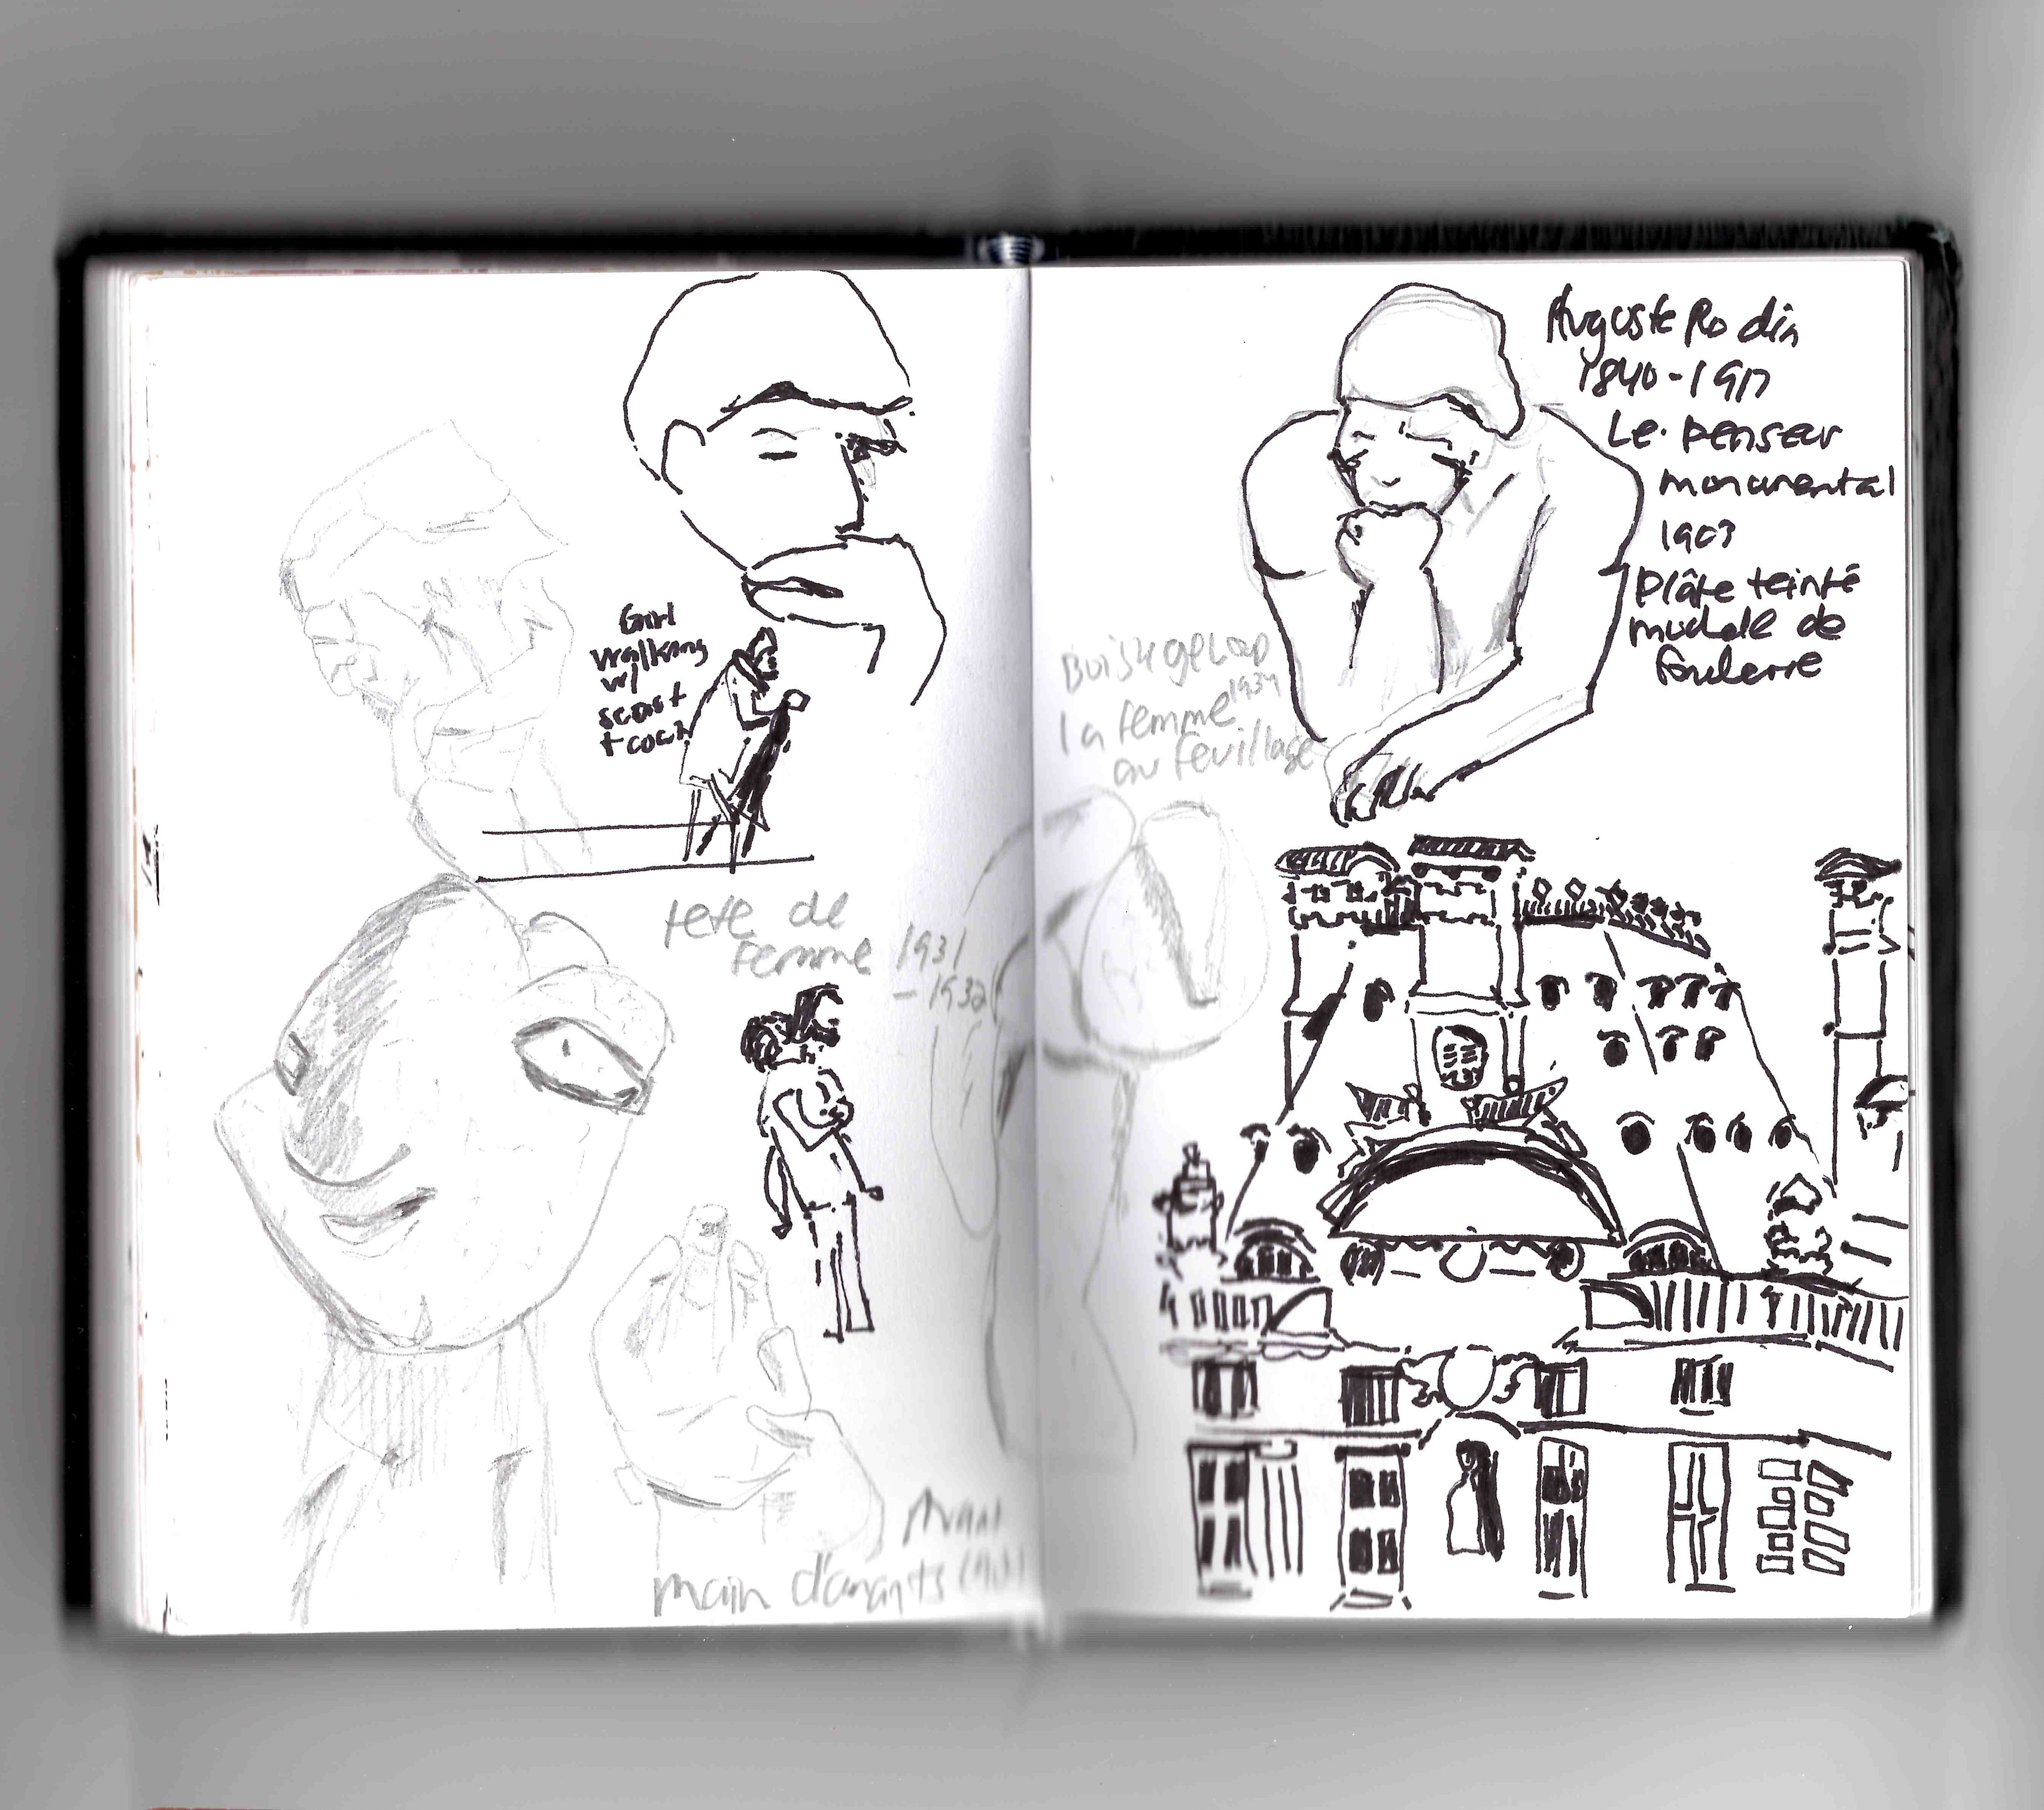 Girl
walking
w/
+ coat
tete de
femme 1931
- 1932
main d'amants
Auguste Rodin
1840-1917
Le penseur
monumental
1903
plâtre teinté
de
Boisgeloup
1934
la femme
au feuillage